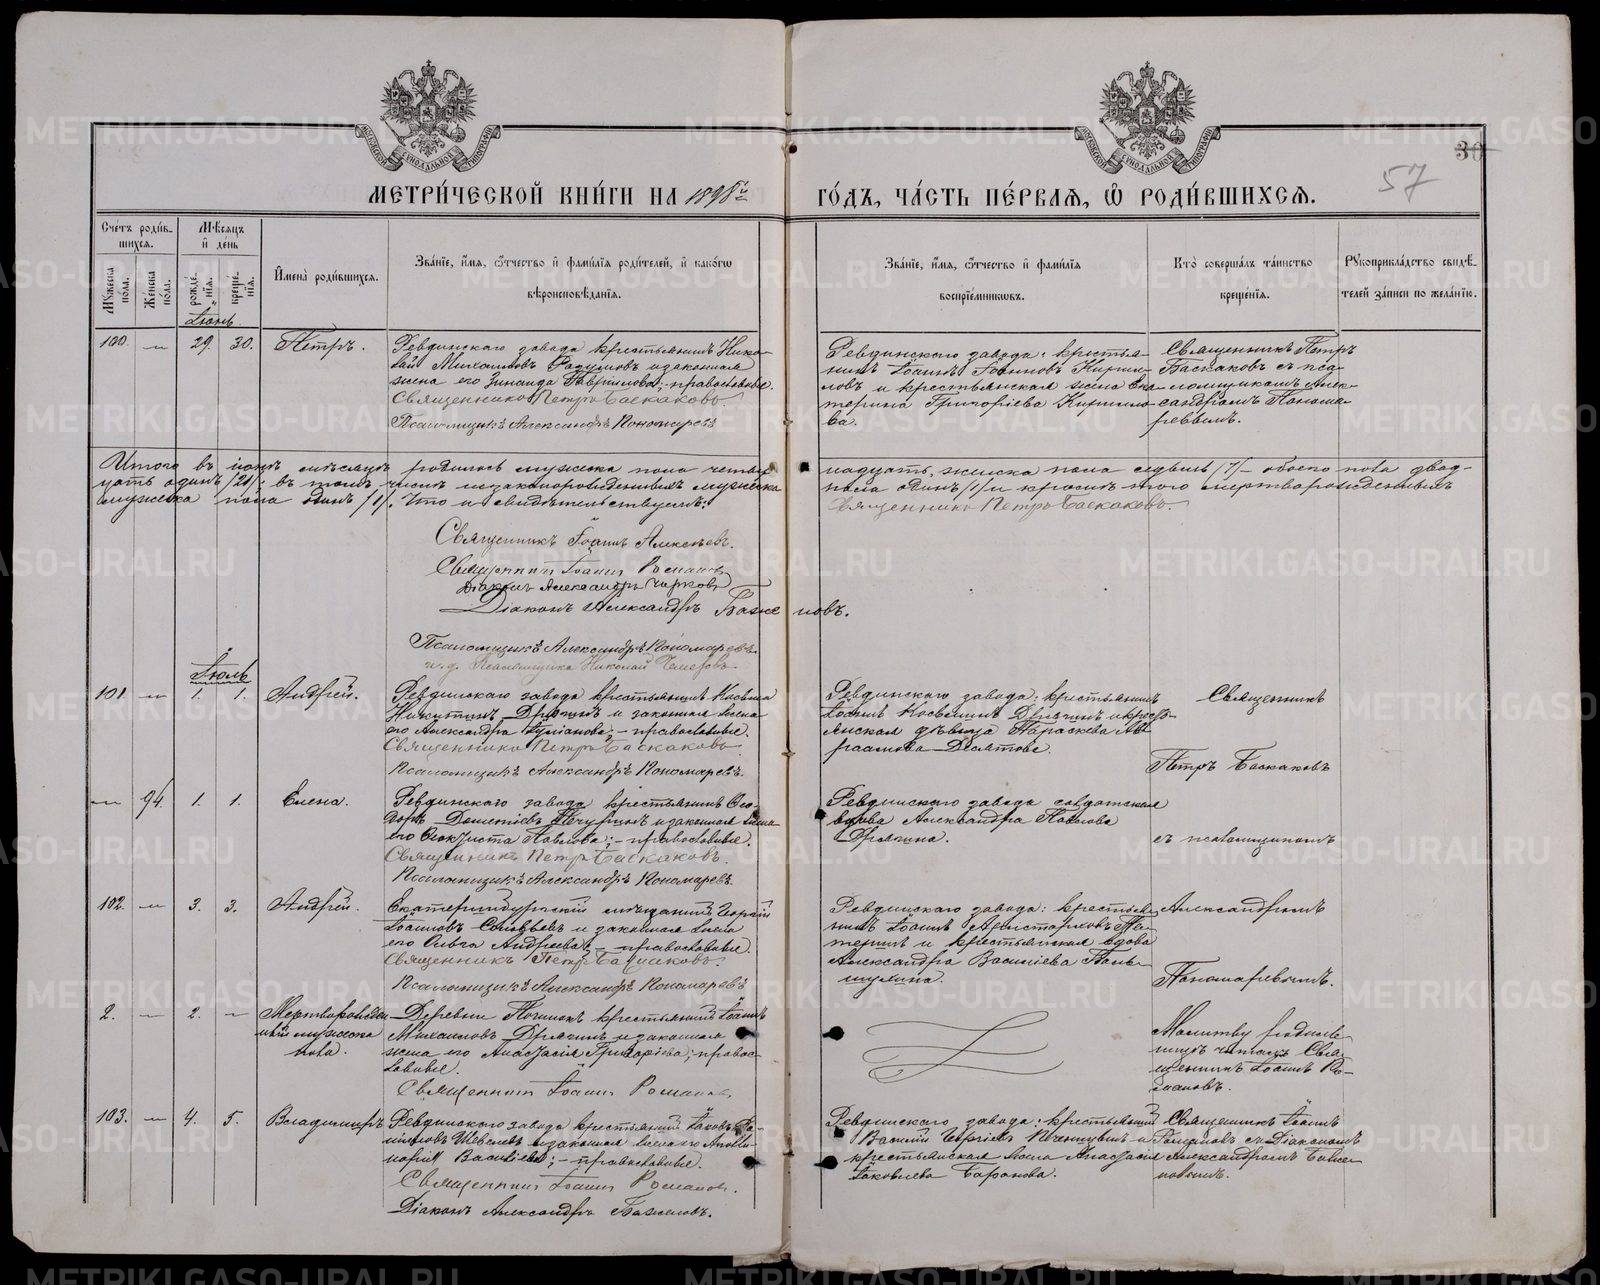 МЕТРИ́ЧЕСКОЙ КНИ́ГИ НА 1898й
ГО́ДЪ, ЧА́СТЬ ПЕ́РВАЯ, Ѽ РОДИ́ВШИХСЯ.
30
57
Сче́тъ роди́вшихся.
Мѣ́сяцъ и́ де́нь
Му́жеска по́ла.
Же́нска по́ла.
рожде́нїя.
креще́нїя.
И҆мена̀ роди́вшихся.
Зва́нїе, и҆́мя, ѻ҆́тчество и҆ фами́лїя роди́телей, и҆ како́гѡ
вѣроисповѣ́данїя.
Зва́нїе, и҆́мя, ѻ҆́тчество и҆ фами́лїя
воспрїе́мникѡвъ.
Кто̀ соверша́лъ та́инство
креще́нїя.
Рꙋкоприкла́дство свидѣ́телей за́писи по жела́нїю.
Іюнь.
100. — 29. 30. Петръ.
Ревдинскаго завода крестьянинъ Нико-
лай Михаиловъ и законная
жена его Зинаида Гаврiилова; православные.
Священникъ Петръ Баскаковъ.
Псаломщикъ Александръ Пономаревъ
Ревдинскаго завода: крестья-
нинъ Іоаннъ Іоанновъ Кирил-
ловъ и крестьянская жена Ека-
терина Григорiева Кирилло-
ва.
Священникъ Петръ
Баскаковъ съ пса-
ломщикомъ Алек-
сандромъ Понома-
ревымъ.
Итого въ іюнѣ мѣсяцѣ родилось мужеска пола четыр
надцать, женска пола седмь /7/ — обоего пола двад-
цать одинъ /21/: въ томъ числѣ незаконорожденныхъ мужеска
пола одинъ /1/ и кромѣ того мертворожденныхъ
мужеска пола одинъ /1/. Что и свидѣтельствуемъ:
Священникъ Петръ Баскаковъ.
Священникъ Іоаннъ Алексѣевъ.
Священникъ Іоаннъ Романовъ
Дiаконъ Александръ Чирковъ
Дiаконъ Александръ Баженовъ.
Псаломщикъ Александръ Пономаревъ
и. д. Псаломщика Николай
Іюль
101. — 1. 1. Андрей.
Ревдинскаго завода крестьянинъ Косьма
Никитинъ Дрягинъ и законная жена
его Александра; — православные.
Священникъ Петръ Баскаковъ
Псаломщикъ Александръ Пономаревъ.
Ревдинскаго завода: крестьянинъ
Іоаннъ Косьминъ Дрягинъ и кресть-
янская дѣвица Параскева Ав-
раамова Десятова.
Священникъ
Петръ Баскаковъ
— 94. 1. 1. Елена.
Ревдинскаго завода крестьянинъ Ѳео-
доръ Дометіевъ и законная жена
его Ѳеоктиста Павлова; — православные.
Священникъ Петръ Баскаковъ.
Псаломщикъ Александръ Пономаревъ.
Ревдинскаго завода солдатская
вдова Александра Павлова
Дрягина.
съ псаломщикомъ
102. — 3. 3. Андрей.
Екатеринбургскiй мѣщанинъ Георгiй
Іоанновъ Соловьевъ и законная жена
его Ольга Андреева; — православные.
Священникъ Петръ Баскаковъ.
Псаломщикъ Александръ Пономаревъ
Ревдинскаго завода: крестья-
нинъ Іоаннъ Аристарховъ
и крестьянская вдова
Александра Василiева
Александромъ
Пономаревымъ.
2. — 2. — Мертворожден-
ный мужеска
пола.
Деревни Починокъ крестьянинъ Іоаннъ
Михаиловъ Дрягинъ и законная
жена его Анастасiя Григорiева; правос-
лавные.
Священникъ Іоаннъ Романовъ
Молитву родиль-
ницѣ читалъ Свя-
щенникъ Іоаннъ Ро-
мановъ.
103. — 4. 5. Владимиръ
Ревдинскаго завода крестьянинъ Іаковъ
Шевелевъ и законная жена его Аполли-
нарiя Василiева; — православные.
Священникъ Іоаннъ Романовъ.
Дiаконъ Александръ Баженовъ.
Ревдинскаго завода: крестьянинъ
Василiй Георгiевъ и
крестьянская жена Анастасiя
Іаковлева Баранова.
Священникъ Іоаннъ
Романовъ съ Дiакономъ
Александромъ Баже-
новымъ.
METRIKI.GASO-URAL.RU